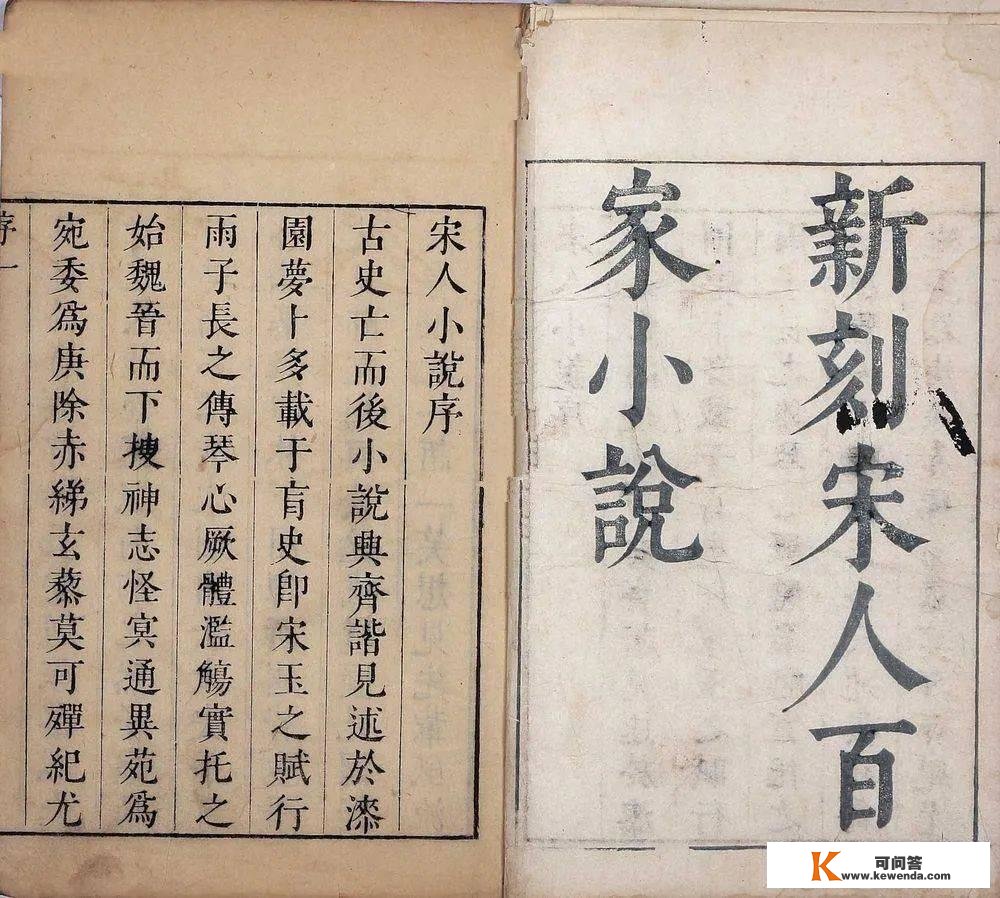 新刻宋人百
家小說
宋人小說序
古史亡而後小說興齊諧見述於漆
園夢卜多載于盲史卽宋玉之賦行
雨子長之傳琴心厥體濫觴實托之
始魏晉而下搜神志怪㝠通異苑爲
宛委爲庚除赤綈玄蔡莫可殫紀尤
序一
可问答
www.kewenda.com